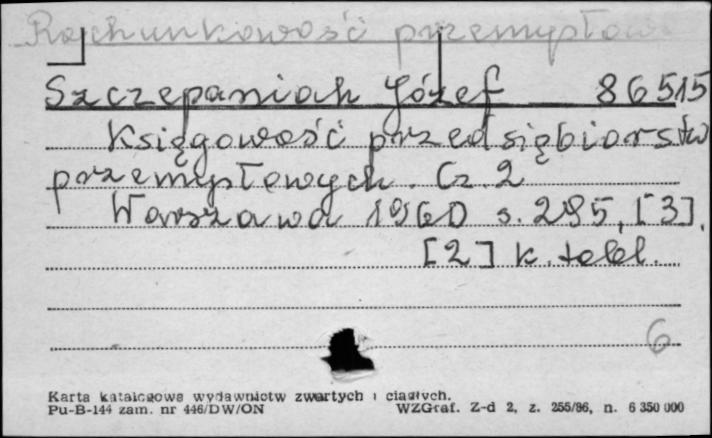 Rachunkowość przemysłowa
Szczepaniak Józef 86515
Księgowość przedsiębiorstw
przemysłowych. Cz. 2
Warszawa 1960 s. 295, [3],
[2] k. tabl.
6
Karta katalogowa wydawnictw zwartych i ciągłych.
Pu-B-144 zam. nr 446/DW/ON WZGraf. Z-d 2, z. 255/86, n. 6 350 000